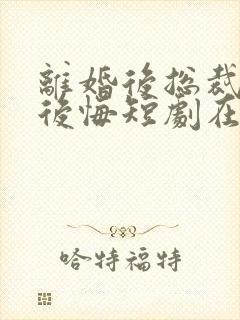 離婚後總裁
後悔短劇在
哈特福特